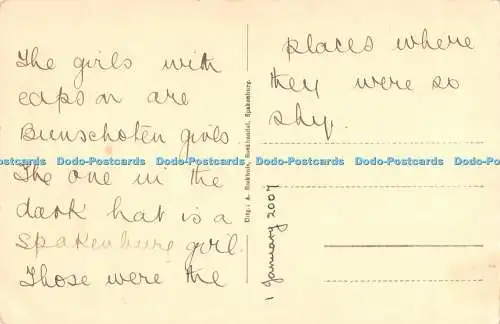 The girls with
caps on are
Bunschoten girls
The one in the
dark hat is a
Spakenburg girl.
Those were the
places where
they were so
shy.
Dodo-Postcards Dodo-Postcards Dodo-Postcards Dodo-Postcards Dodo-Postcards
Boekhandel, Spakenburg.
1 January 2007